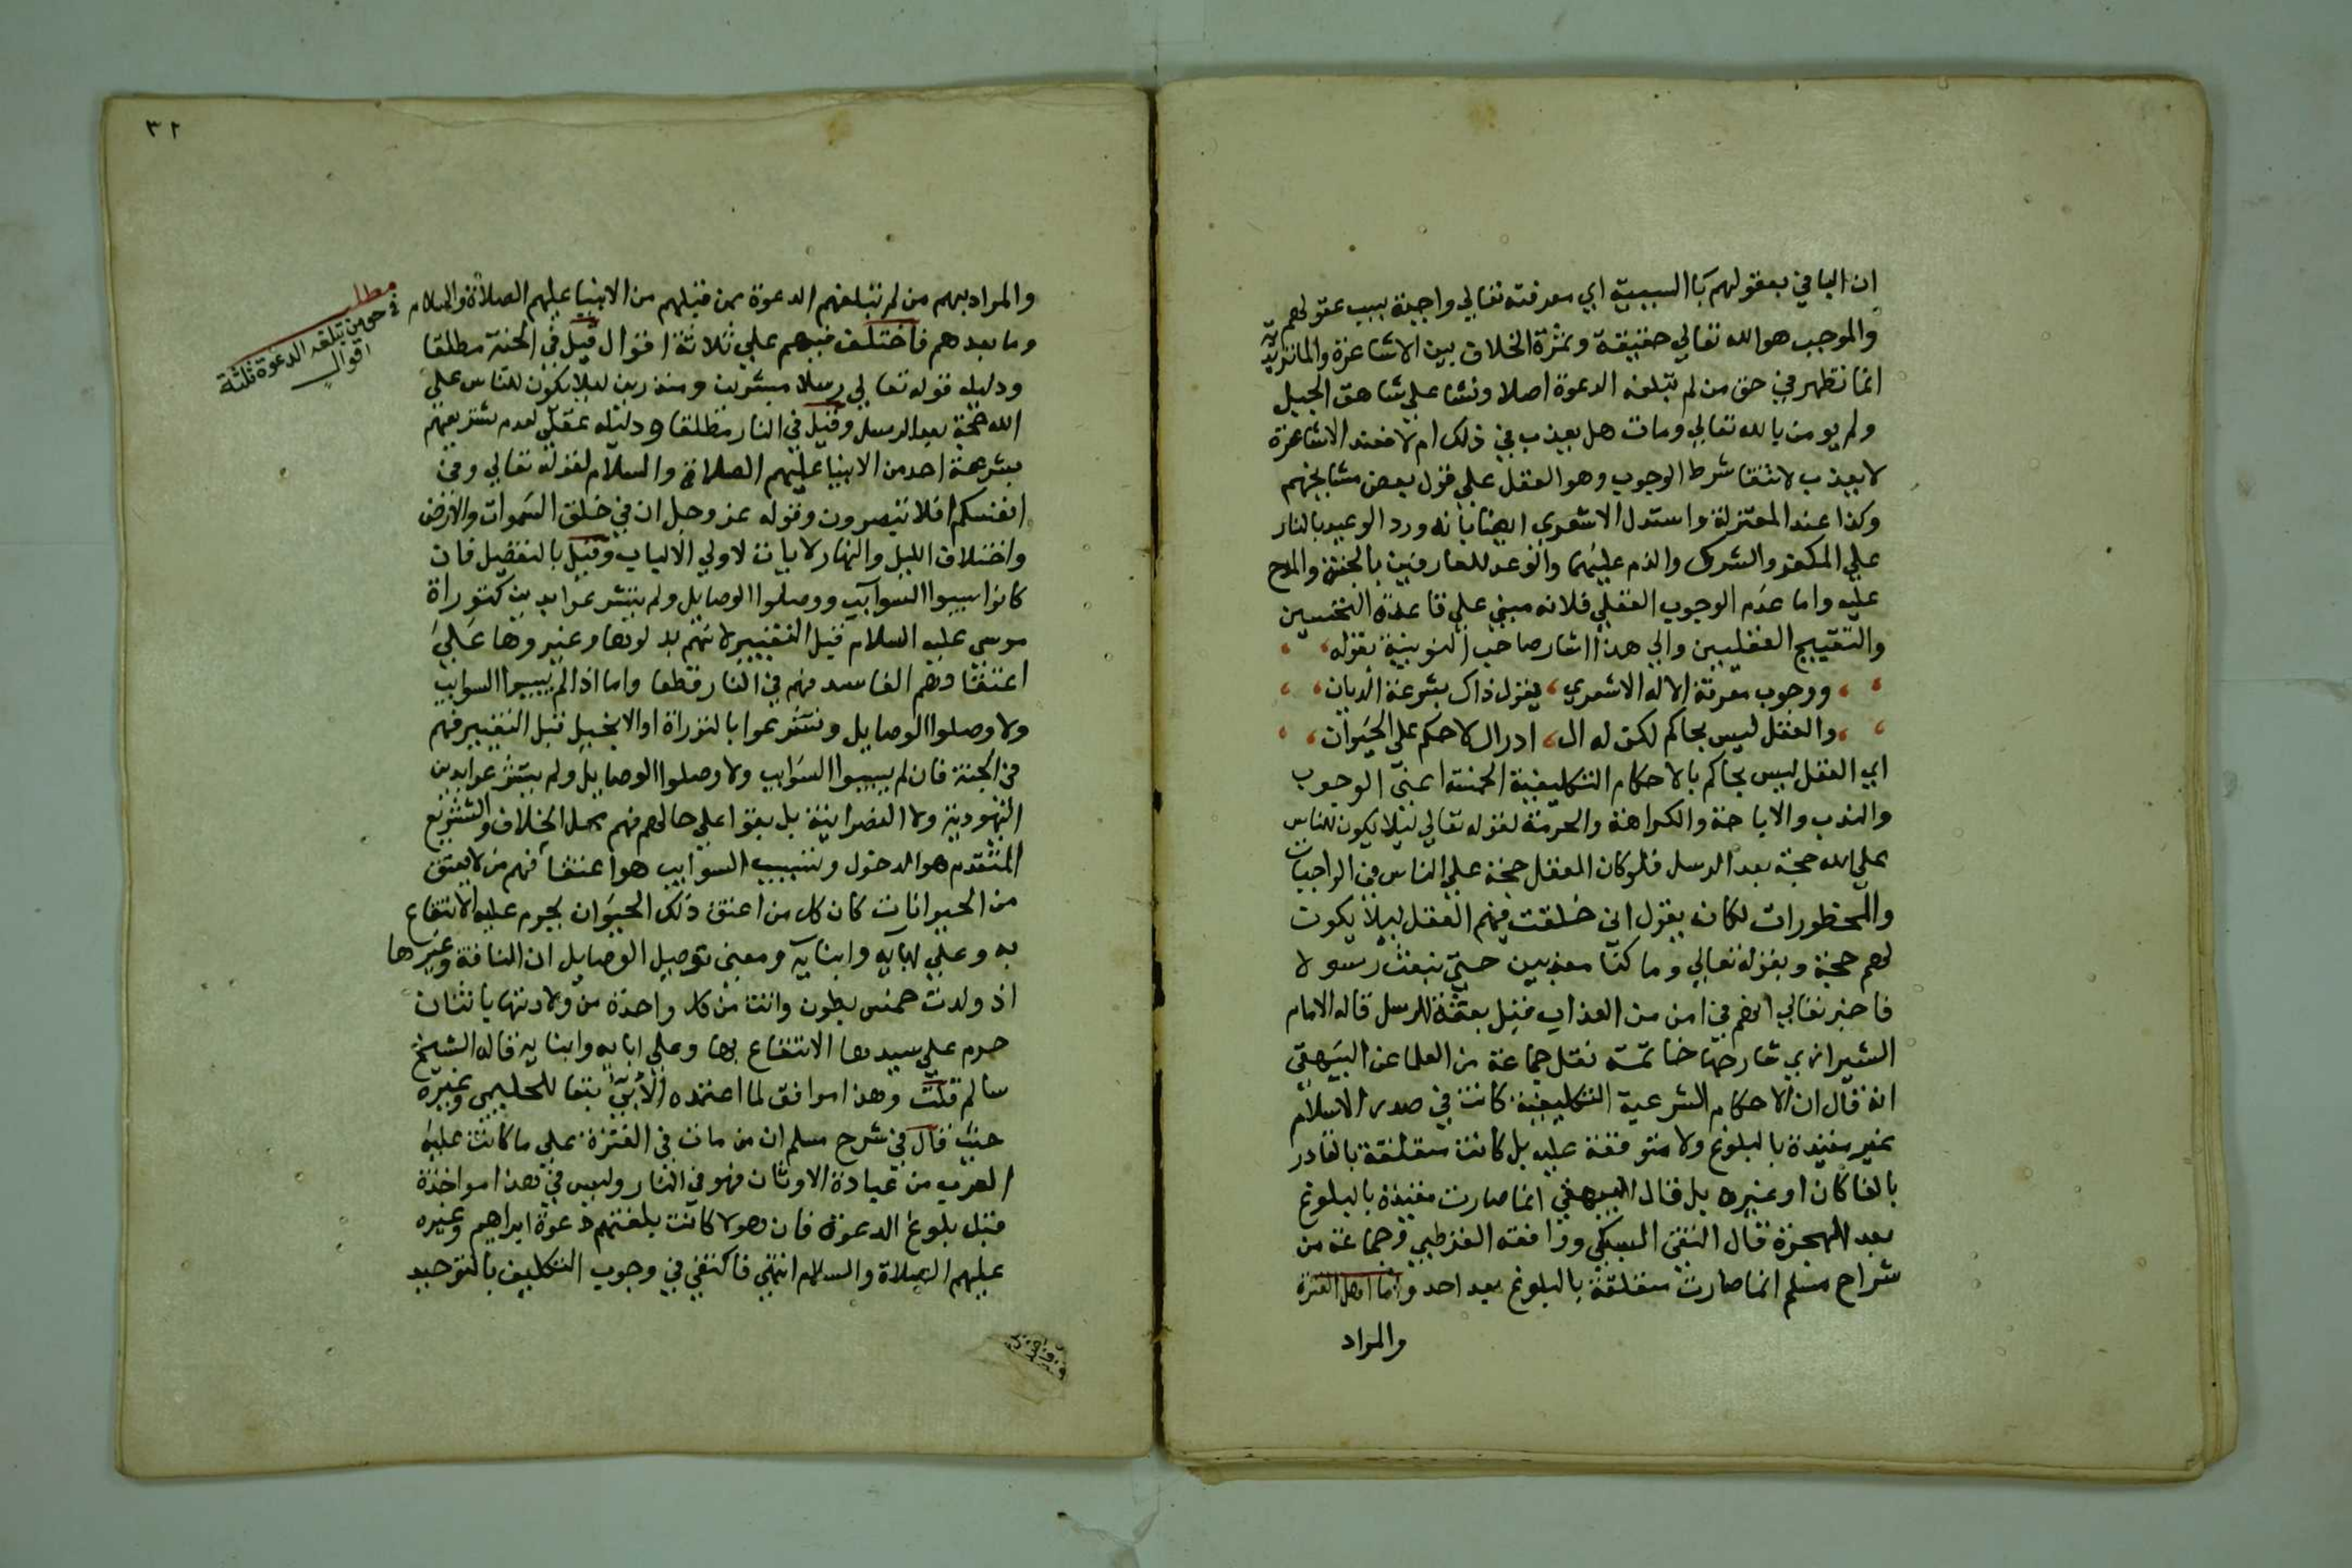 ان البا في بعقولهم باالسببية اي معرفته تعالي واجبة بسبب عقولهم
والموجب هو الله تعالي حقيقة وثمرة الخلاف بين الاشاعرة والماتريدية
انما تظهر في حق من لم تبلغه الدعوة اصلا ونشا علي شاهق الجبل
ولم يومن بالله تعالي ومات هل يعذب في ذلك ام لا فعند الاشاعرة
لا يعذب لانتفا شرط الوجوب وهو العقل علي قول بعض مشايخهم
وكذا عند المعتزلة واستدل الاشعري ايضا بانه ورد الوعيد بالنار
علي الكفر والشرك والذم عليهما والوعد للعارفين بالجنة والمدح
عليه واما عدم الوجوب العقلي فلانه مبني علي قاعدة التحسين
والتقبيح العقليين والي هذا اشار صاحب النونية بقوله
ووجوب معرفة الاله الاشعري يقول ذاك بشرعة الديان
والعقل ليس بحاكم لكن له ال ادراك لا حكم علي الحيوان
اي العقل ليس بحاكم بالاحكام التكليفية الخمسة اعني الوجوب
والندب والاباحة والكراهة والحرمة لقوله تعالي ليلا يكون للناس
علي الله حجة بعد الرسل فلو كان العقل حجة علي الناس في الواجبات
والمحظورات لكان يقول اني خلقت فيهم العقل ليلا يكون
لهم حجة وبقوله تعالي وما كنا معذبين حتي نبعث رسولا
فاخبر تعالي انهم في امن من العذاب قبل بعثة الرسل قاله الامام
الشيرازي شارحها خاتمة نقل جماعة من العلما عن البيهقي
انه قال ان الاحكام الشرعية التكليفية كانت في صدر الاسلام
غير مقيدة بالبلوغ ولا متوقفة عليه بل كانت متعلقة بالقادر
بالغا كان او غيره بل قال البيهقي انما صارت مقيدة بالبلوغ
بعد الهجرة قال التقي السبكي ووافقه القرطبي وجماعة من
شراح مسلم انما صارت متعلقة بالبلوغ بعد احد واما اهل الفترة
والمراد
٣٢
مطلب
في حق من تبلغه الدعوة ثلثة
اقوال
والمراد بهم من لم تبلغهم الدعوة ممن قبلهم من الانبيا عليهم الصلاة والسلام
وما بعدهم فاختلف فيهم علي ثلاثة اقوال قيل في الجنة مطلقا
ودليله قوله تعالي رسلا مبشرين ومنذرين ليلا يكون للناس علي
الله حجة بعد الرسل وقيل في النار مطلقا ودليله عقلي لعدم تشريعهم
بشرعة احد من الانبيا عليهم الصلاة والسلام لقوله تعالي وفي
انفسكم افلا تبصرون وقوله عز وجل ان في خلق السموات والارض
واختلاف الليل والنهار لايات لاولي الالباب وقيل بالتفصيل فان
كانوا سيبوا السوايب ووصلوا الوصايل ولم يتشرعوا بدين كتوراة
موسي عليه السلام قبل التغيير لانهم بدلوها وغيروها علي
اعتقادهم الفاسد فهم في النار قطعا واما اذا لم يسيبوا السوايب
ولا وصلوا الوصايل وتشرعوا بالتوراة او الانجيل قبل التغيير فهم
في الجنة فان لم يسيبوا السوايب ولا وصلوا الوصايل ولم يتشرعوا بدين
اليهودية ولا النصرانية بل بقوا علي حالهم فهم محل الخلاف والتشريع
المتقدم هو الدخول وتسييب السوايب هو اعتقا فهم من لا يعتق
من الحيوانات كان كل من اعتق ذلك الحيوان يحرم عليه الانتفاع
به وعلي ابايه وابنايه ومعني توصيل الوصايل ان الناقة وغيرها
اذ ولدت خمس بطون واتت من كل واحدة من ولادتها بانثان
حرم علي سيدها الانتفاع بها وعلي ابايه وابنايه قاله الشيخ
سالم قلت وهذا موافق لما اعتمده الابي تبعا للحليمي وغيره
حيث قال في شرح مسلم ان من مات في الفترة علي ما كانت عليه
العرب من عبادة الاوثان فهو في النار وليس في هذا مواخذة
قبل بلوغ الدعوة فان هولا كانت بلغتهم دعوة ابراهيم وغيره
عليهم الصلاة والسلام انتهي فاكتفي في وجوب التكليف بالتوحيد